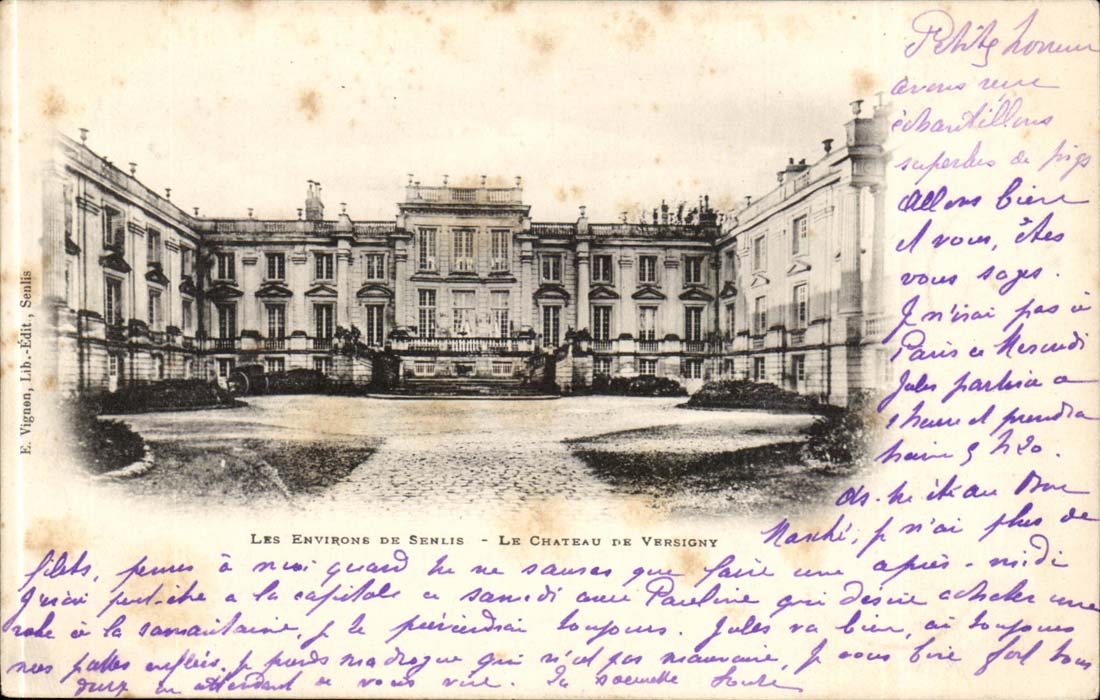 Petite horreur
avons reçu
échantillons
superbes de
Allons bien
et vous, êtes
vous sages.
Je n'irai pas à
Paris ce Mercredi
Jules partira a
1 heure et prendra
5 h 20.
au Bon
Marché, je n'ai plus de
filets, penses à moi quand tu ne sauras que faire une après-midi
J'irai peut-être a la capitale ce samedi avec Pauline qui désire acheter une
robe à la samaritaine, je te préviendrai toujours. Jules va bien, ai toujours
mes pattes enflées, je prends ma drogue qui n'est pas mauvaise, je vous bise fort tous
deux en attendant de vous voir. Ta
E. Vignon, Lib.-Edit., Senlis
LES ENVIRONS DE SENLIS - LE CHATEAU DE VERSIGNY